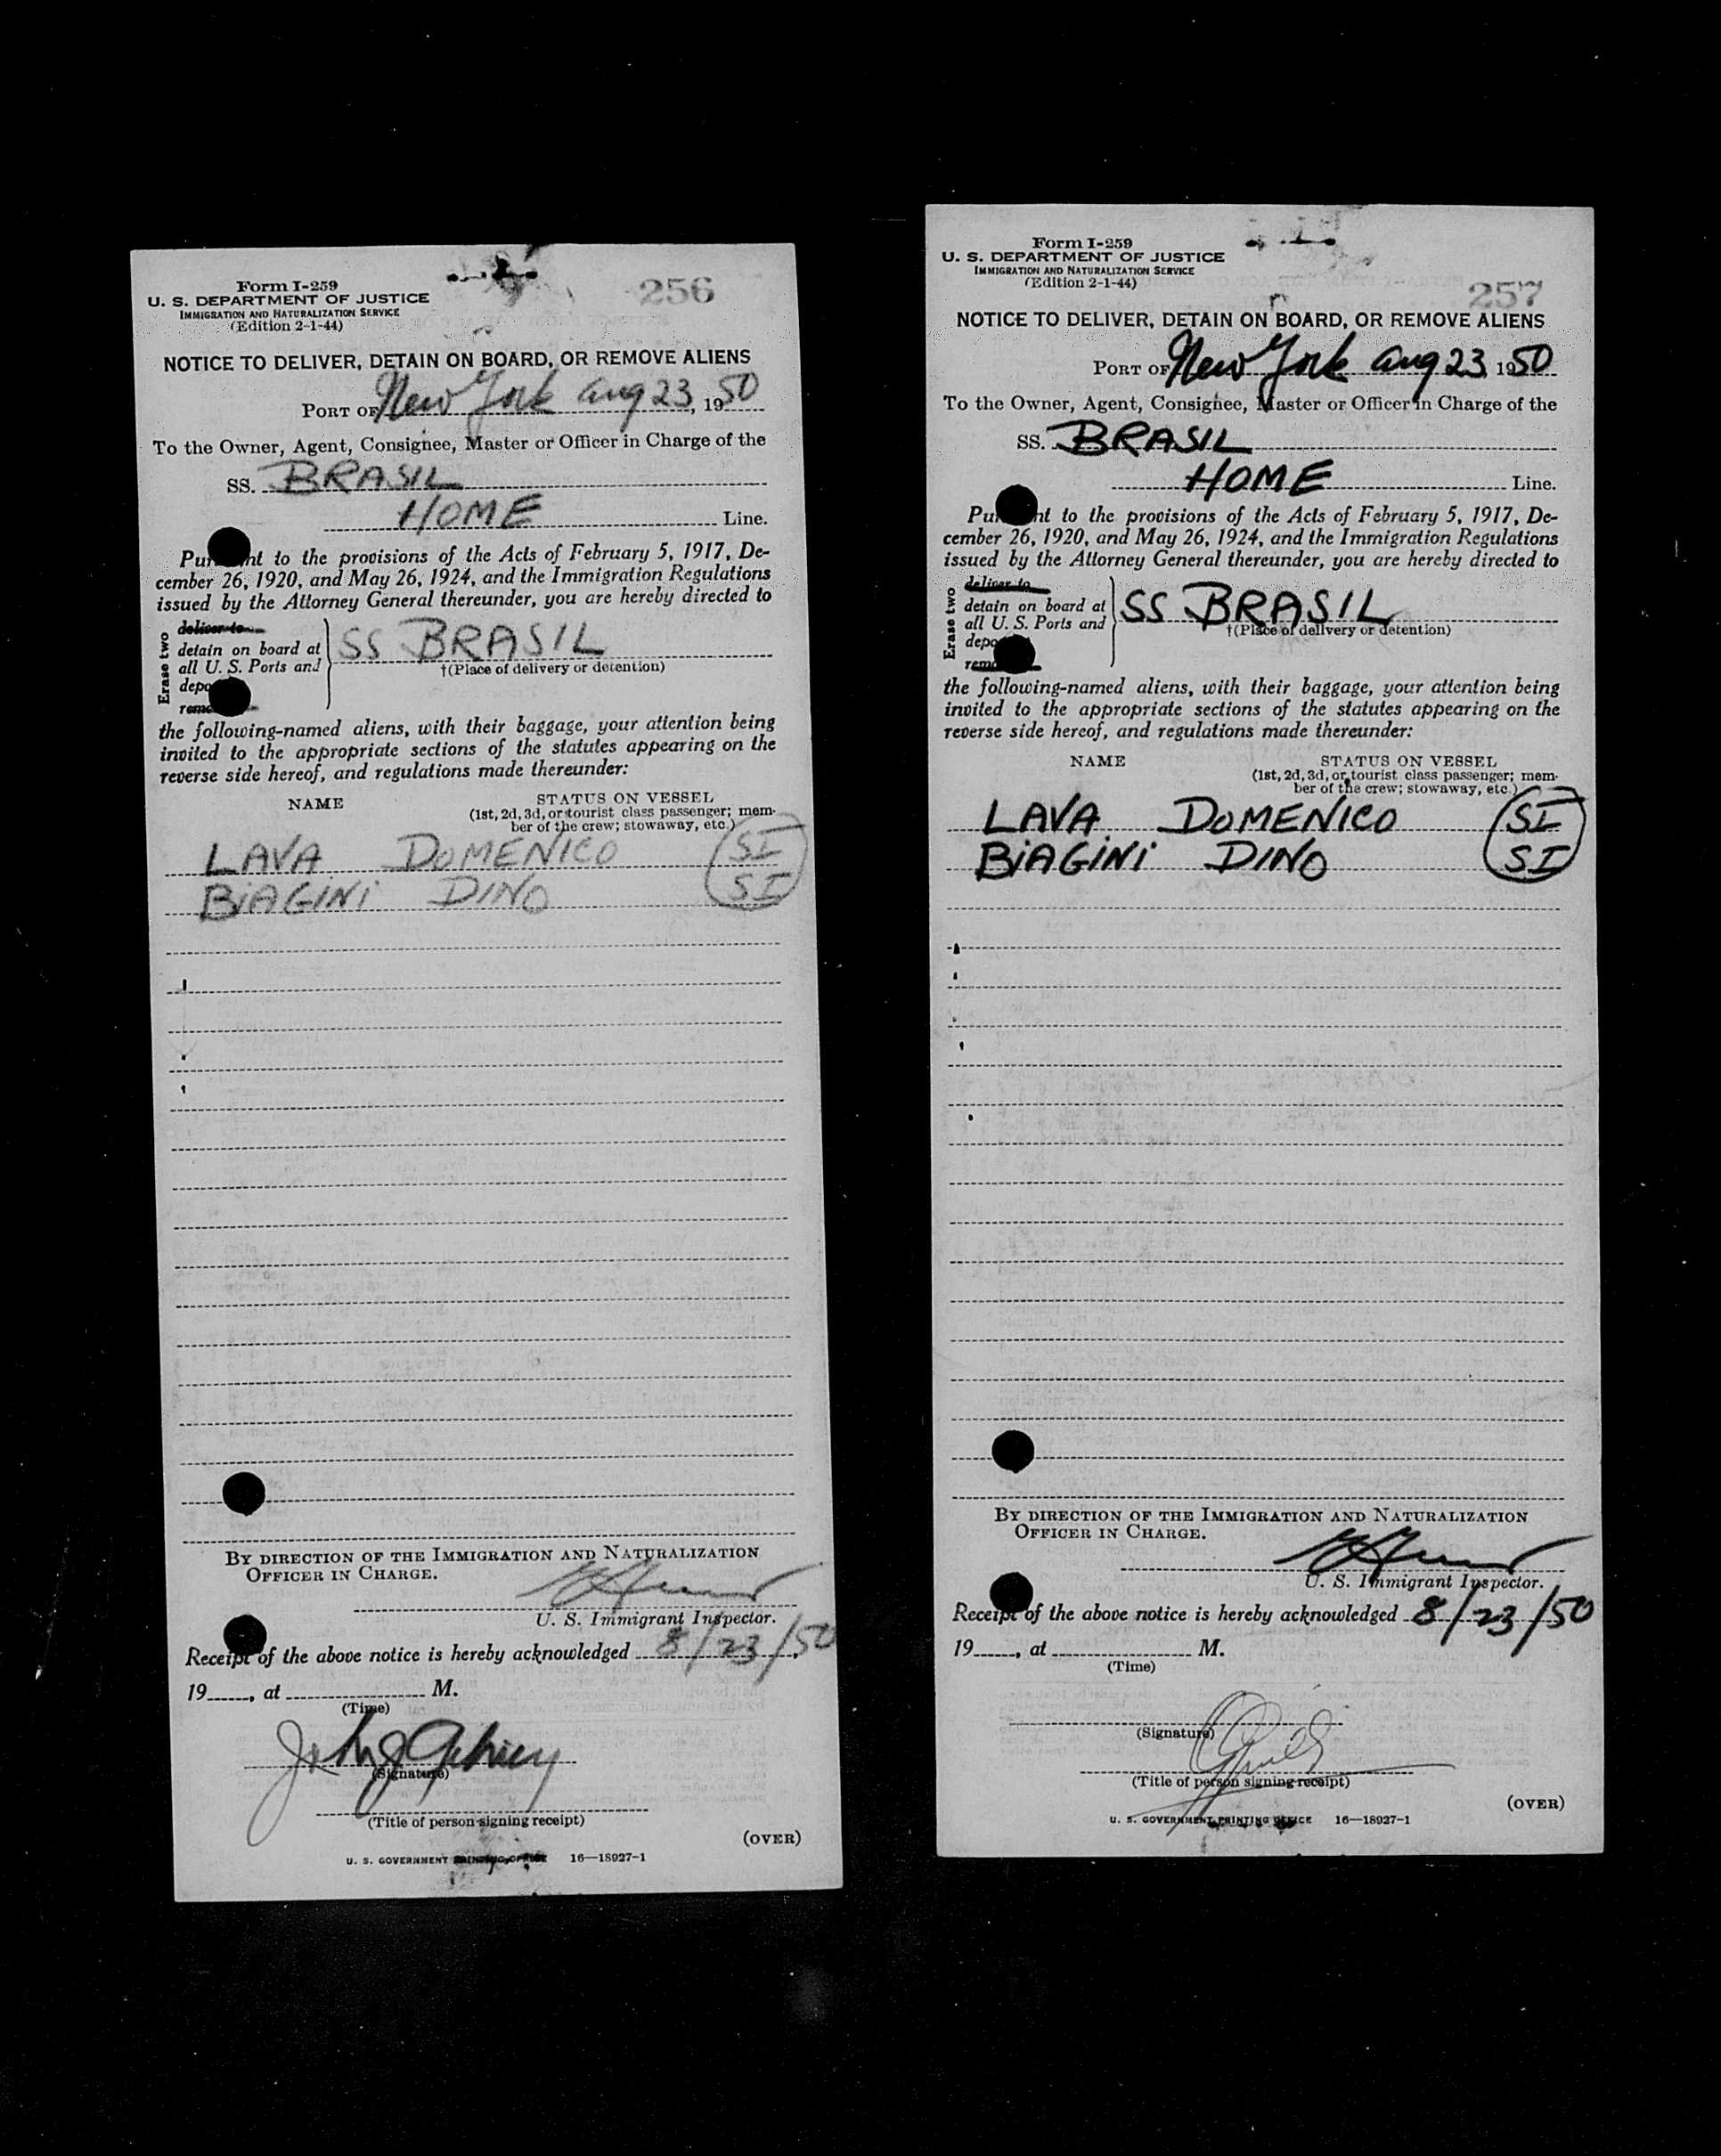 Form I-259
U. S. DEPARTMENT OF JUSTICE
IMMIGRATION AND NATURALIZATION SERVICE
(Edition 2-1-44)
256
NOTICE TO DELIVER, DETAIN ON BOARD, OR REMOVE ALIENS
PORT OF New York Aug 23, 1950
To the Owner, Agent, Consignee, Master or Officer in Charge of the
SS. BRASIL
HOME Line.
Pursuant to the provisions of the Acts of February 5, 1917, De-
cember 26, 1920, and May 26, 1924, and the Immigration Regulations
issued by the Attorney General thereunder, you are hereby directed to
Erase two
deliver to
detain on board at
all U. S. Ports and
SS BRASIL
†(Place of delivery or detention)
the following-named aliens, with their baggage, your attention being
invited to the appropriate sections of the statutes appearing on the
reverse side hereof, and regulations made thereunder:
NAME STATUS ON VESSEL
(1st, 2d, 3d, or tourist class passenger; mem-
ber of the crew; stowaway, etc.)
LAVA DOMENICO SI
BIAGINI DINO SI
BY DIRECTION OF THE IMMIGRATION AND NATURALIZATION
OFFICER IN CHARGE.
U. S. Immigrant Inspector.
Receipt of the above notice is hereby acknowledged 8/23/50,
19____, at ____ M.
(Time)
(Signature)
(Title of person signing receipt)
(OVER)
U. S. GOVERNMENT PRINTING OFFICE 16—18927-1
Form I-259
U. S. DEPARTMENT OF JUSTICE
IMMIGRATION AND NATURALIZATION SERVICE
(Edition 2-1-44)
257
NOTICE TO DELIVER, DETAIN ON BOARD, OR REMOVE ALIENS
PORT OF New York Aug 23, 1950
To the Owner, Agent, Consignee, Master or Officer in Charge of the
SS. BRASIL
HOME Line.
Pursuant to the provisions of the Acts of February 5, 1917, De-
cember 26, 1920, and May 26, 1924, and the Immigration Regulations
issued by the Attorney General thereunder, you are hereby directed to
Erase two
deliver to
detain on board at
all U. S. Ports and
SS BRASIL
†(Place of delivery or detention)
the following-named aliens, with their baggage, your attention being
invited to the appropriate sections of the statutes appearing on the
reverse side hereof, and regulations made thereunder:
NAME STATUS ON VESSEL
(1st, 2d, 3d, or tourist class passenger; mem-
ber of the crew; stowaway, etc.)
LAVA DOMENICO SI
BIAGINI DINO SI
BY DIRECTION OF THE IMMIGRATION AND NATURALIZATION
OFFICER IN CHARGE.
U. S. Immigrant Inspector.
Receipt of the above notice is hereby acknowledged 8/23/50
19____, at ____ M.
(Time)
(Signature)
(Title of person signing receipt)
(OVER)
U. S. GOVERNMENT PRINTING OFFICE 16—18927-1